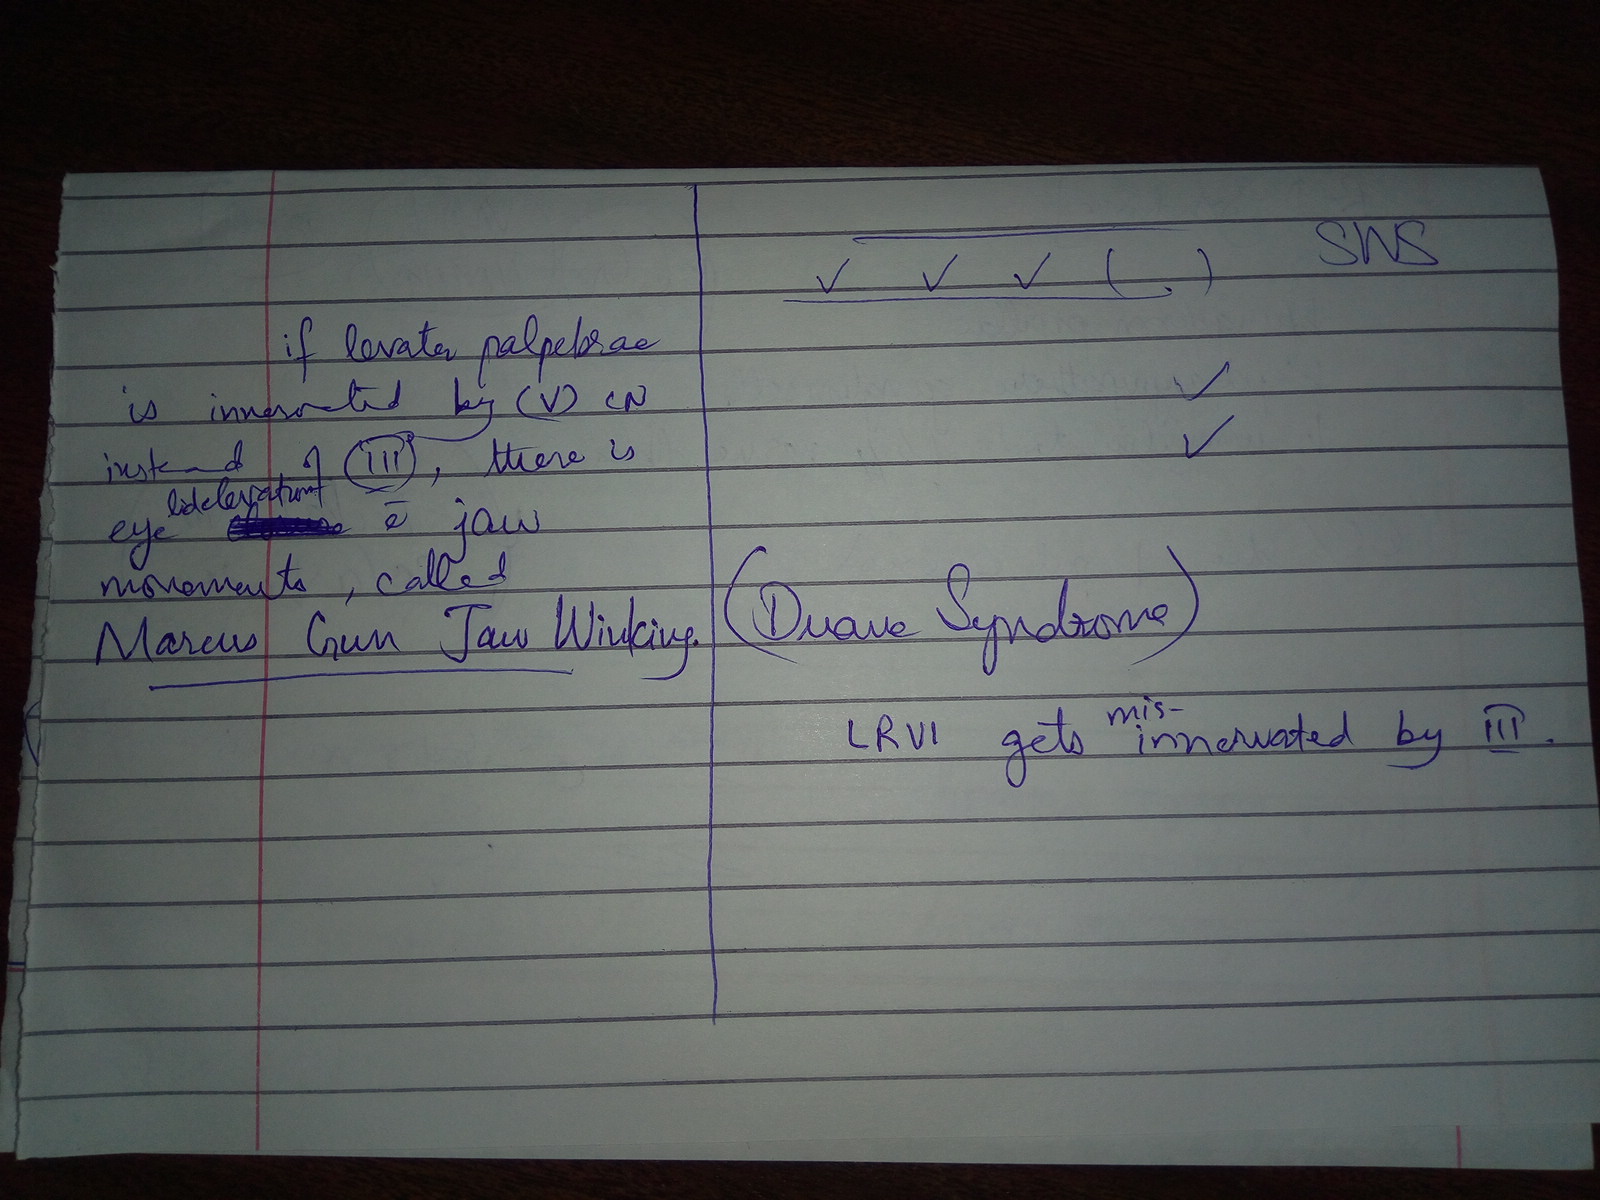 if levator palpebrae
is innervated by (V) CN
instead of (III), there is
eye lid elevation c̄ jaw
movements, called
Marcus Gun Jaw Winking.
✓ ✓ ✓ ( . )
SNS
✓
✓
(Duane Syndrome)
LRVI gets mis-innervated by III.